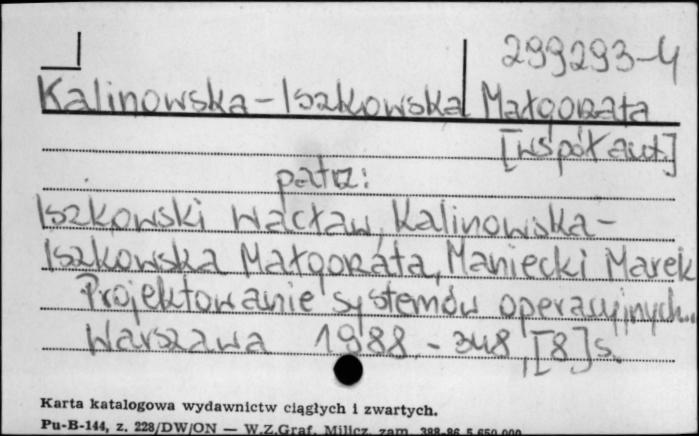 299293-4
Kalinowska-Iszkowska Małgorzata
[współaut.]
patrz:
Iszkowski Wacław, Kalinowska-
Iszkowska Małgorzata, Maniecki Marek
Projektowanie systemów operacyjnych...
Warszawa 1988.- 348,[8]s.
Karta katalogowa wydawnictw ciągłych i zwartych.
Pu-B-144, z. 228/DW/ON — W.Z.Graf. Milicz, zam. 388-86 5.650.000